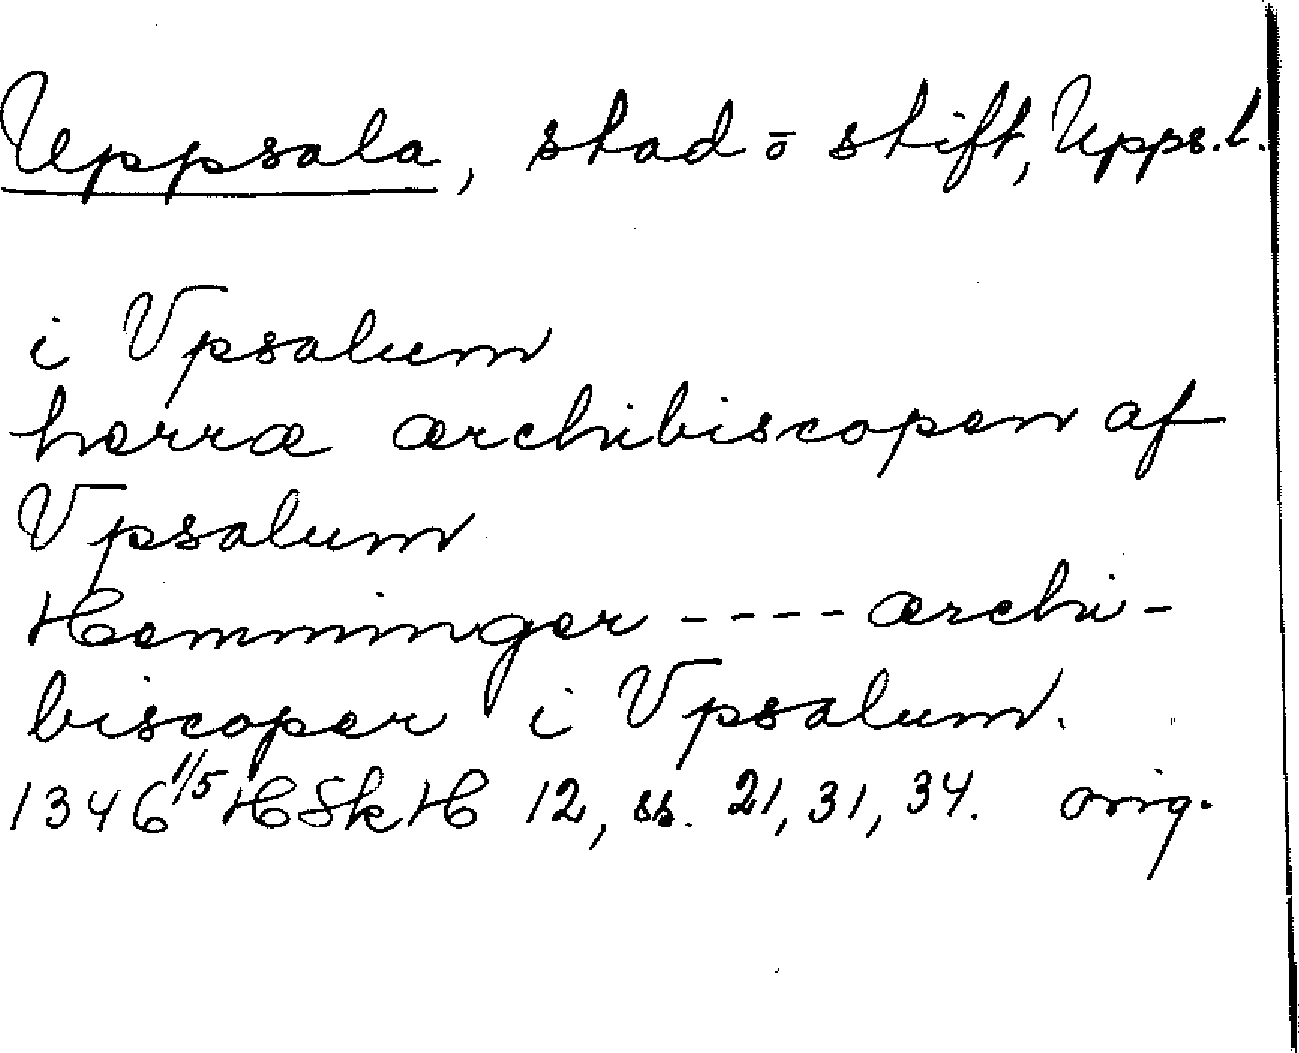 Uppsala, stad o stift, Upps. l.
i Vpsalum
herræ ærchibiscopen af
Vpsalum
Hemminger ---- ærchi-
biscoper i Vpsalum.
1346 1/5 HSkH 12, ss. 21, 31, 34. orig.